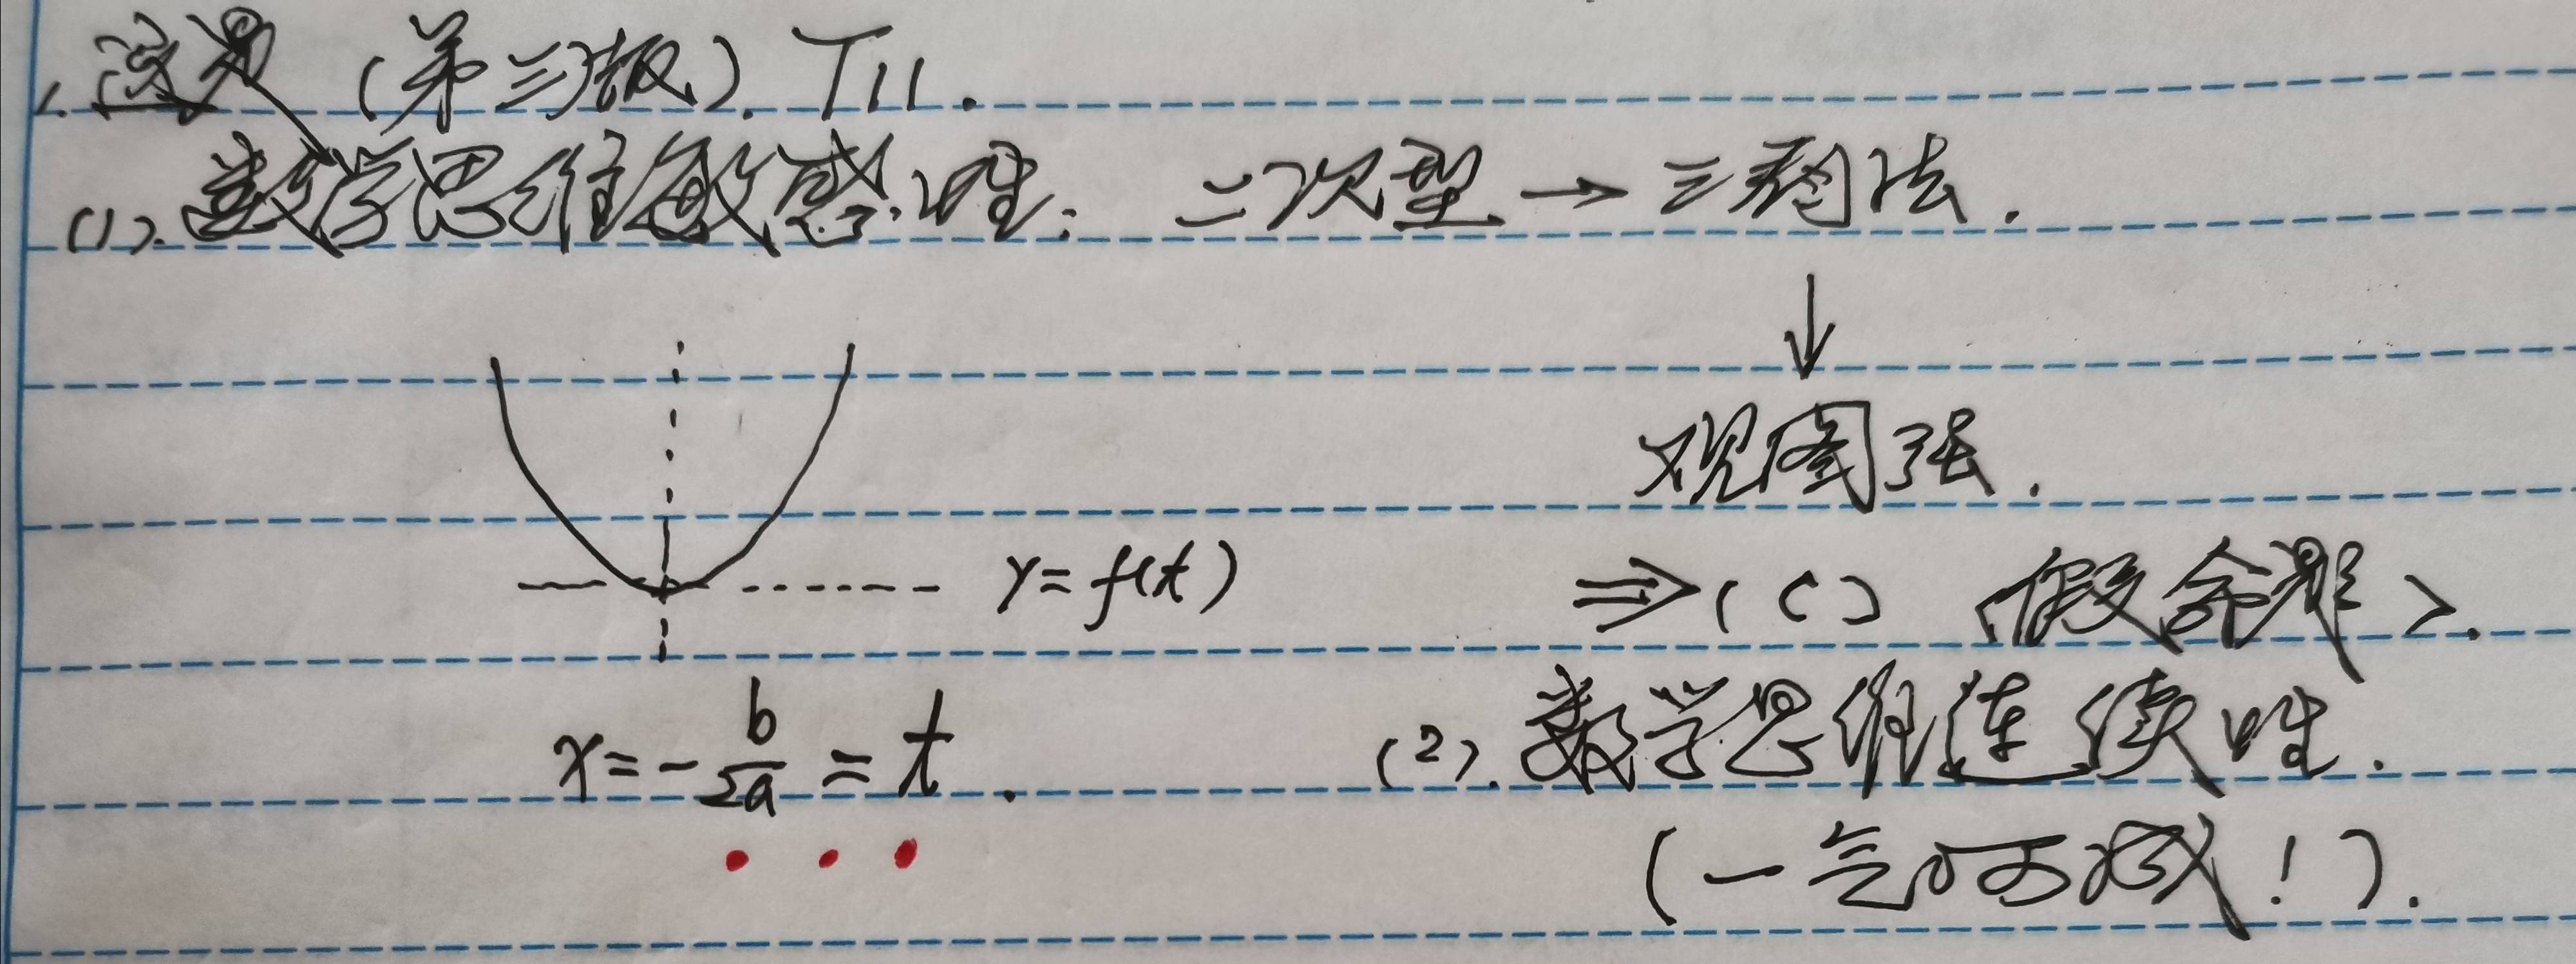 1. (第三版). T11.
(1). 数学思维敏感性: 二次型→三法.
↓
观图法.
y=f(t) ⇒(C) (假命题).
x=-b/2a=t. (2). 数学思维连续性.
(一气呵成!).